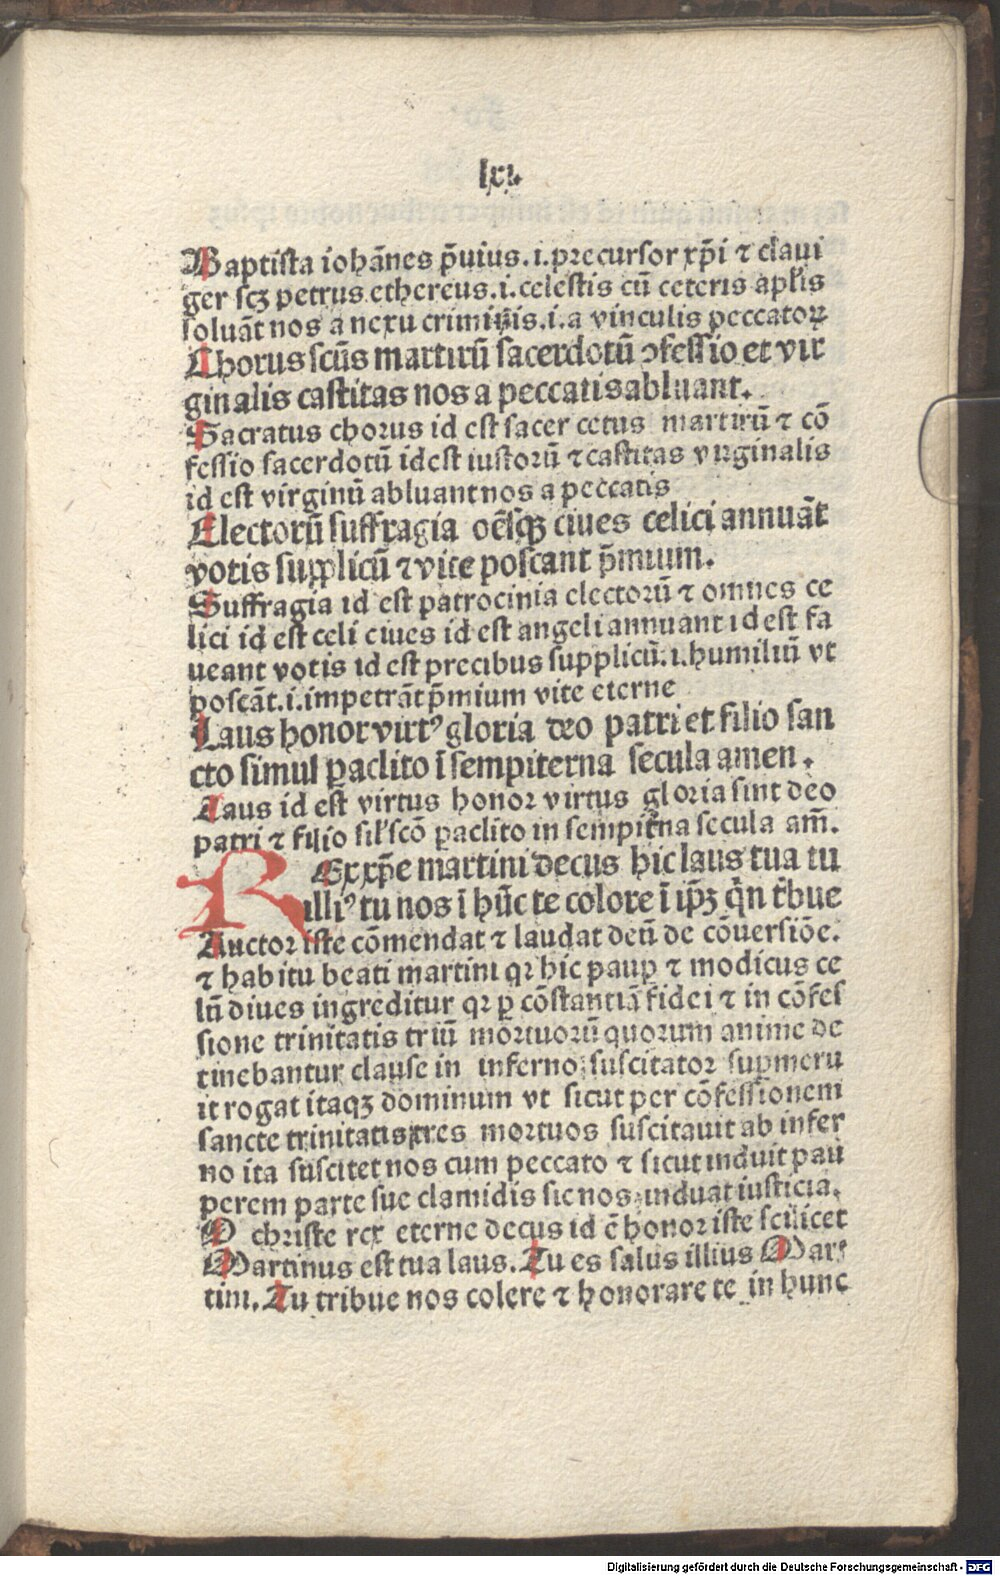 lxi.
Baptista iohānes p̄uius.i.precursor xp̄i ⁊ claui
ger scꝫ petrus ethereus.i.celestis cū ceteris apl̄is
soluāt nos a nexu criminis.i.a vinculis peccatoꝝ
Chorus scūs martirū sacerdotū ꝯfessio et vir
ginalis castitas nos a peccatis abluant.
Sacratus chorus id est sacer cetus martirū ⁊ cō
fessio sacerdotū id est iustorū ⁊ castitas virginalis
id est virginū abluant nos a peccatis
Electorū suffragia oēsqꝫ ciues celici annuāt
votis supplicū ⁊ vite poscant p̄mium.
Suffragia id est patrocinia electorū ⁊ omnes ce
lici id est celi ciues id est angeli annuant id est fa
ueant votis id est precibus supplicū.i.humiliū vt
poscāt.i.impetrāt p̄mium vite eterne
Laus honor virtꝰ gloria deo patri et filio san
cto simul ꝑaclito ī sempiterna secula amen.
Laus id est virtus honor virtus gloria sint deo
patri ⁊ filio sil' scō ꝑaclito in sempit̄na secula am̄.
REx xp̄e martini decus hic laus tua tu
illiꝰ tu nos ī hūc te colore ī ip̄ꝫ q̄n t̄bue
Auctor iste cōmendat ⁊ laudat deū de cōuersiōe.
⁊ habitu beati martini qꝛ hic pauꝑ ⁊ modicus ce
lū diues ingreditur qꝛ ꝑ cōstantiā fidei ⁊ in cōfes
sione trinitatis triū mortuorū quorum anime de
tinebantur clause in inferno suscitator suꝑmeru
it rogat itaqꝫ dominum vt sicut per cōfessionem
sancte trinitatis tres mortuos suscitauit ab infer
no ita suscitet nos cum peccato ⁊ sicut induit pau
perem parte sue clamidis sic nos induat iusticia.
O christe rex eterne decus id ē honor iste scilicet
Martinus est tua laus. Tu es salus illius Mar⸗
tini. Tu tribue nos colere ⁊ honorare te in hunc
Digitalisierung gefördert durch die Deutsche Forschungsgemeinschaft - DFG